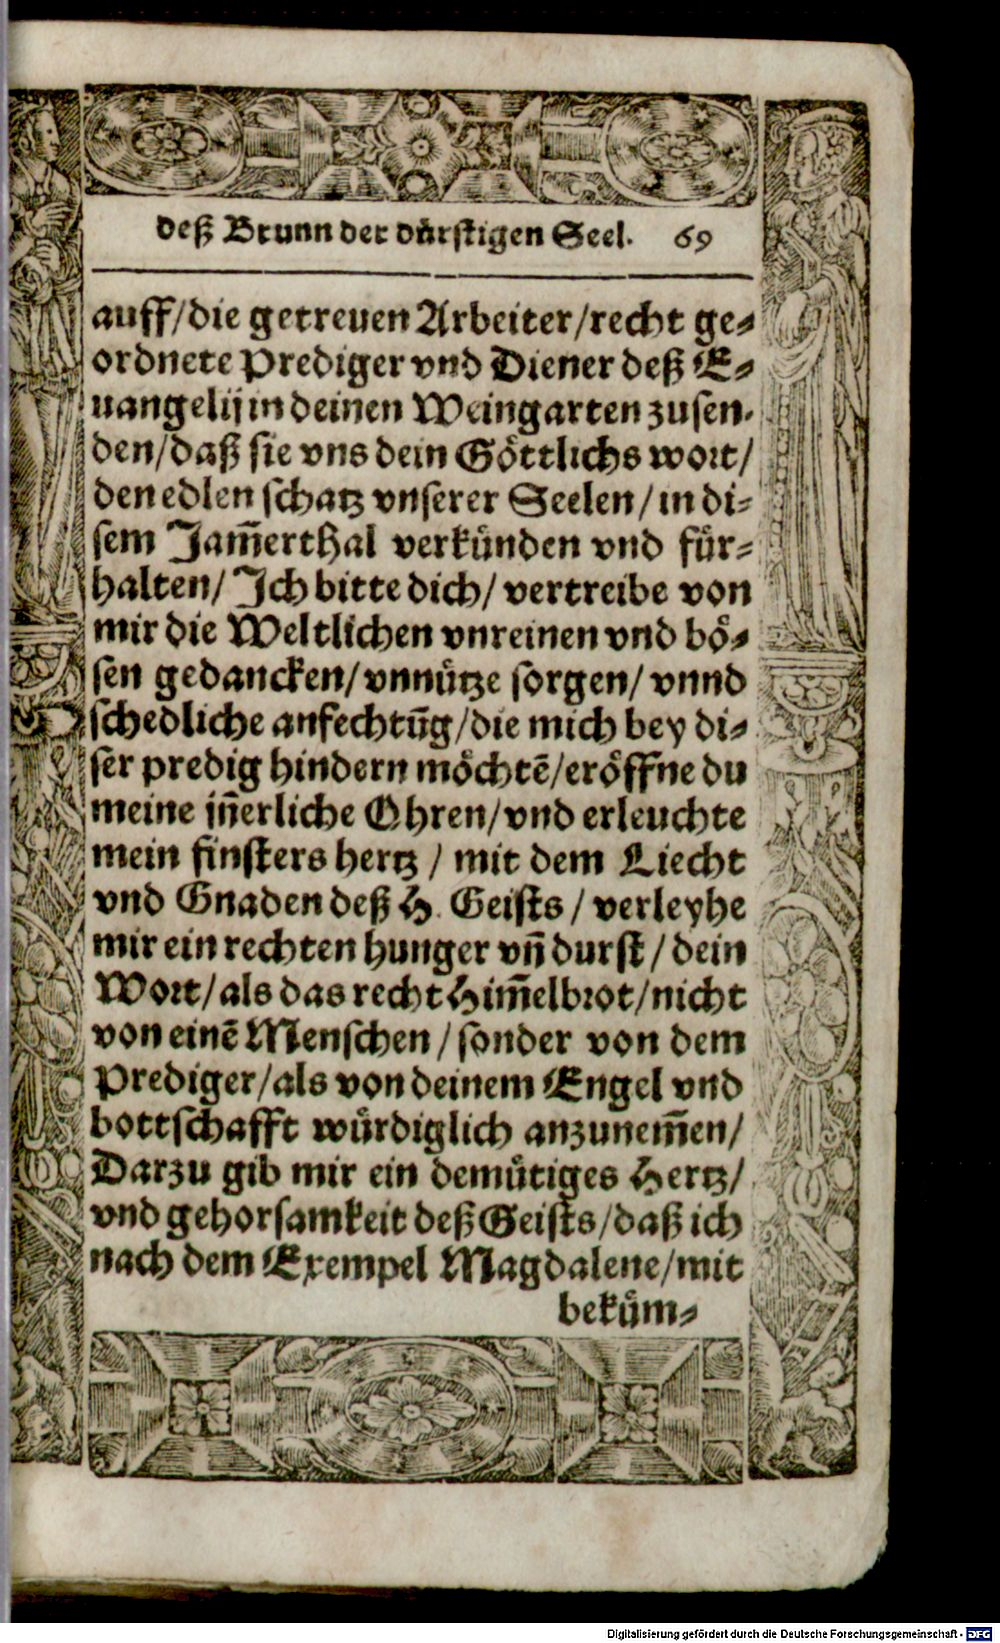 deß Brunn der důrstigen Seel. 69
auff/die getreuen Arbeiter/recht ge⸗
ordnete Prediger vnd Diener deß E⸗
uangelij in deinen Weingarten zusen⸗
den/daß sie vns dein Göttlichs wort/
den edlen schatz vnserer Seelen/in di⸗
sem Jam̄erthal verkünden vnd für⸗
halten/ Jch bitte dich/ vertreibe von
mir die Weltlichen vnreinen vnd bö⸗
sen gedancken/ vnnůtze sorgen/ vnnd
schedliche anfechtūg/die mich bey di⸗
ser predig hindern möchtē/eröffne du
meine in̄erliche Ohren/vnd erleuchte
mein finsters hertz / mit dem Liecht
vnd Gnaden deß H. Geists / verleyhe
mir ein rechten hunger vn̄ durst / dein
Wort/als das recht Him̄elbrot/nicht
von einē Menschen / sonder von dem
Prediger/als von deinem Engel vnd
bottschafft wůrdiglich anzunem̄en/
Darzu gib mir ein demůtiges Hertz/
vnd gehorsamkeit deß Geists/daß ich
nach dem Exempel Magdalene/mit
bekům⸗
Digitalisierung gefördert durch die Deutsche Forschungsgemeinschaft - DFG